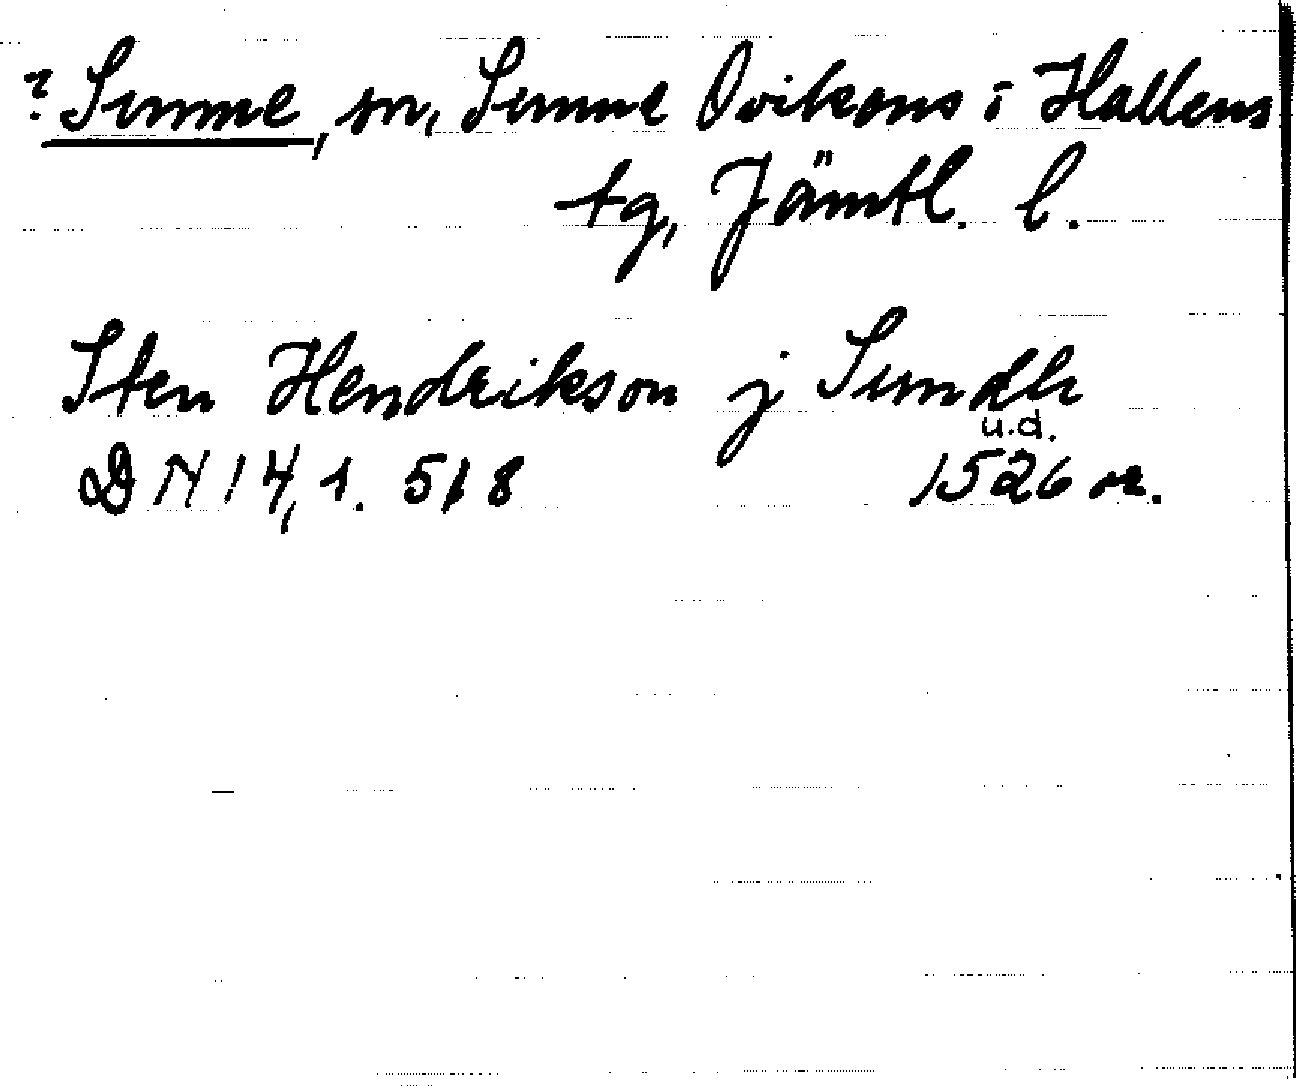 ? Sunne, sn, Sunne Ovikens i Hallens
tg, Jämtl. l.
Sten Hendrikson j Sundh
u.d.
DN 14,1. 518 1526 or.